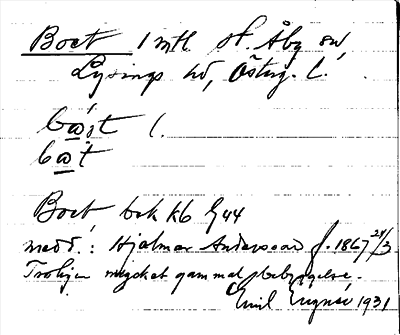 Boet 1 mtl. St. Åby sn,
Lysings hd, Österg. l.
bo̲i̯t l.
bo̲t
Boet bok kb
medd.: Hjalmar Andersson f. 1867 24/3
Troligen mycket gammal bebyggelse.
Emil 1931